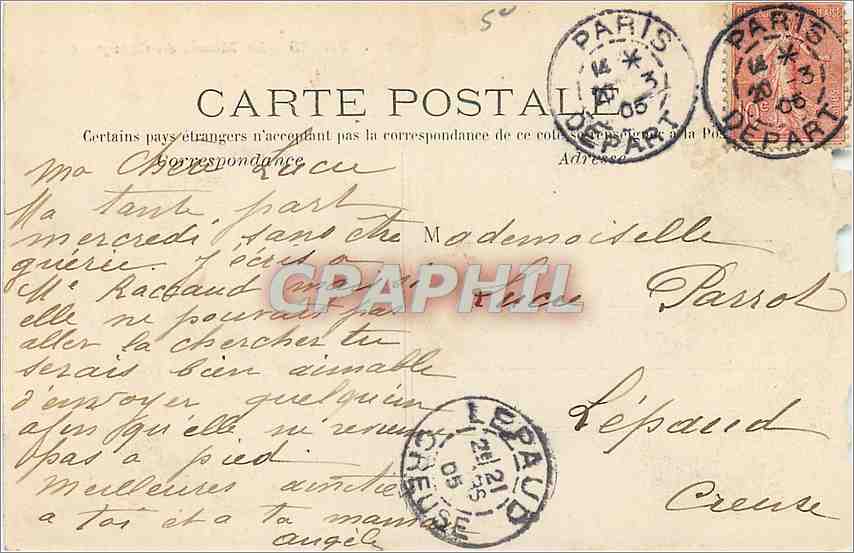 5
CARTE POSTALE
Certains pays étrangers n'acceptent pas la correspondance de ce coté se renseigner à la Po
Correspondance
Adresse
PARIS DEPART
* 3
05
PARIS DEPART
* 3
05
10c
Ma Chère Lucie
Ma tante part
mercredi sans être
guérie. J'écris a
Me Raccaud mais si
elle ne pouvait pas
aller la chercher tu
serais bien aimable
d'envoyer quelqu'un
afin qu'elle ne revienne
pas a pied.
Meilleures amitiés
a toi et a ta maman
Angèle
Mademoiselle
Lucie Parrot
Lépaud
Creuse
CPAPHIL
LEPAUD CREUSE
2E 21
05